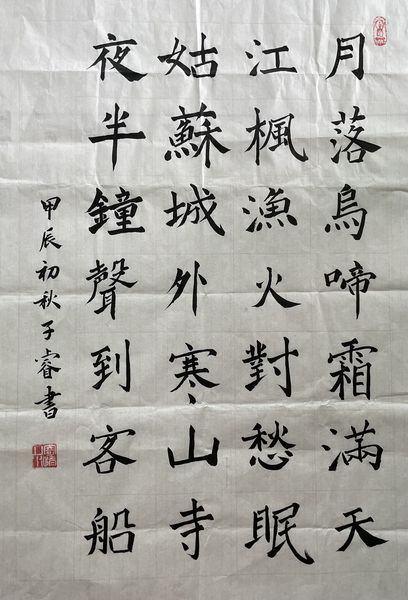 月落烏啼霜滿天
江楓漁火對愁眠
姑蘇城外寒山寺
夜半鐘聲到客船
甲辰初秋子睿書